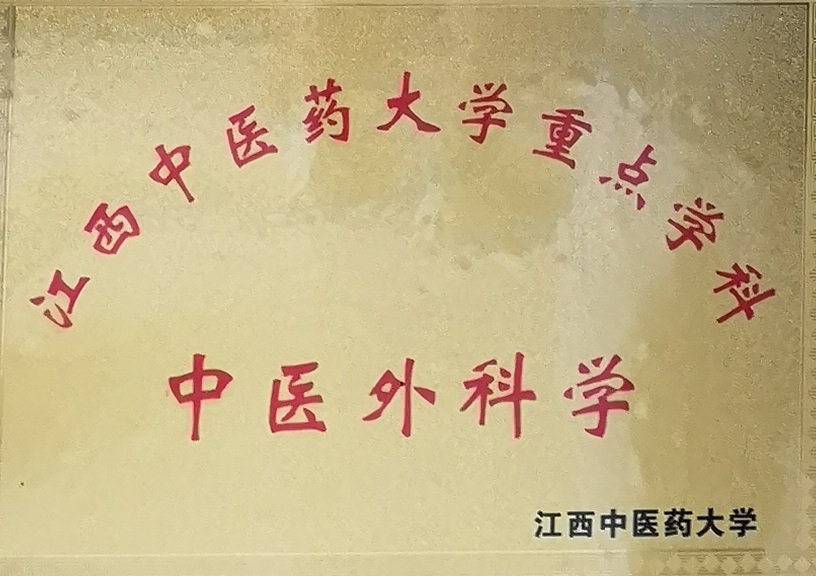 江西中医药大学重点学科
中医外科学
江西中医药大学